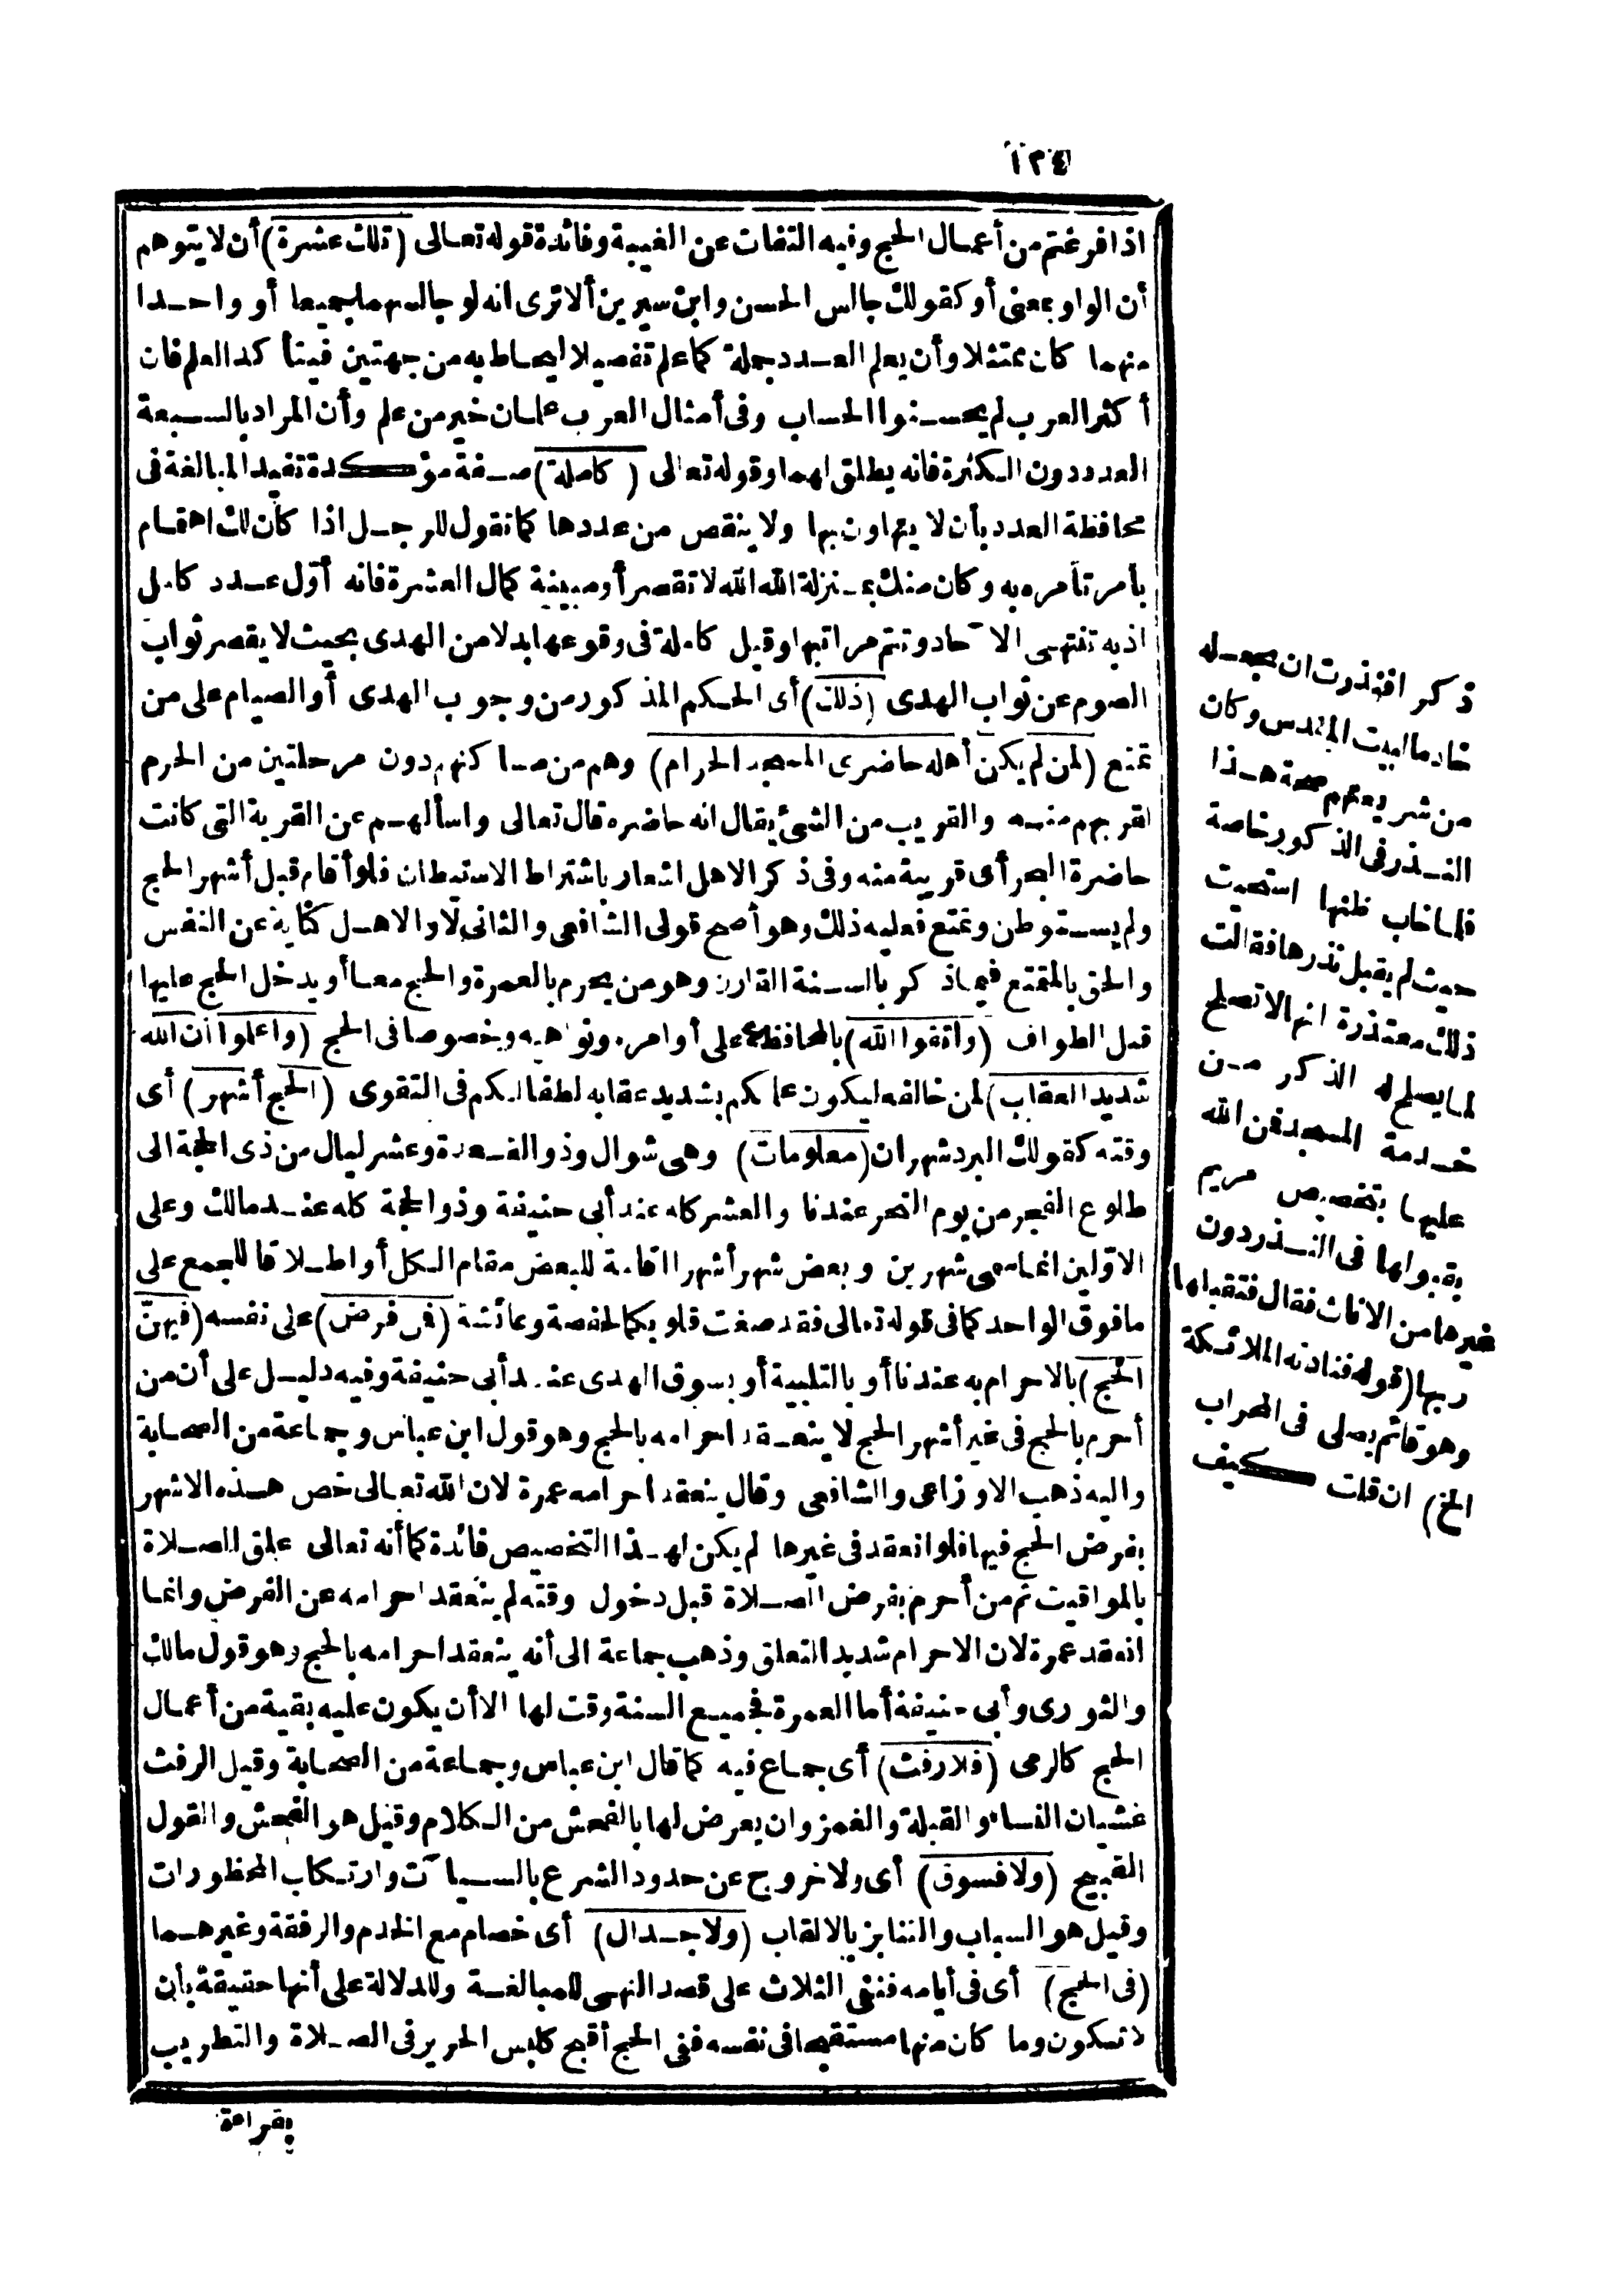 ١٣٤
اذا فرغتم من أعمال الحج وفيه التفات عن الغيبة وفائدة قوله تعالى (تلك عشرة) أن لا يتوهم
أن الواو بمعنى أو كقولك جالس الحسن وابن سيرين ألا ترى انه لو جالسهما جميعا أو واحدا
منهما كان ممتثلا وأن يعلم العدد جملة كما علم تفصيلا ليحاط به من جهتين فيتأكد العلم فان
أكثر العرب لم يحسنوا الحساب وفى أمثال العرب علمان خير من علم وأن المراد بالسبعة
العدد دون الكثرة فانه يطلق لهما وقوله تعالى (كاملة) صفة مؤكدة تفيد المبالغة فى
محافظة العدد بأن لا يتهاون بها ولا ينقص من عددها كما تقول للرجل اذا كان لك اهتمام
بأمر تأمره به وكان منك بمنزلة الله الله لا تقصر أو مبينة كمال العشرة فانه أوّل عدد كامل
اذ به تنتهى الآحاد وتتم مراتبها وقيل كاملة فى وقوعها بدلا من الهدى بحيث لا يقصر ثواب
الصوم عن ثواب الهدى (ذلك) أى الحكم المذكور من وجوب الهدى أو الصيام على من
تمتع (لمن لم يكن أهله حاضرى المسجد الحرام) وهم من مساكنهم دون مرحلتين من الحرم
لقربهم منه والقريب من الشئ يقال انه حاضره قال تعالى واسألهم عن القرية التى كانت
حاضرة البحر أى قريبة منه وفى ذكر الاهل اشعار باشتراط الاستيطان فلو أقام قبل أشهر الحج
ولم يستوطن وتمتع فعليه ذلك وهو أصح قولى الشافعى والثانى لا والاهل كناية عن النفس
والحق بالمتمتع فيما ذكر بالسنة القارن وهو من يحرم بالعمرة والحج معا أو يدخل الحج عليها
قبل الطواف (واتقوا الله) بالمحافظة على أوامره ونواهيه وخصوصا فى الحج (واعلموا أن الله
شديد العقاب) لمن خالفه ليكون علمكم بشديد عقابه لطفا لكم فى التقوى (الحج أشهر) أى
وقته كقولك البرد شهران (معلومات) وهى شوال وذو القعدة وعشر ليال من ذى الحجة الى
طلوع الفجر من يوم النحر عندنا والعشر كله عند أبى حنيفة وذو الحجة كله عند مالك وعلى
الاوّلين انما سمى شهرين وبعض شهر أشهرا اقامة للبعض مقام الكل أو اطلاقا للجمع على
ما فوق الواحد كما فى قوله تعالى فقد صغت قلوبكما لحفصة وعائشة (فمن فرض) على نفسه (فيهنّ
الحج) بالاحرام به عندنا أو بالتلبية أو بسوق الهدى عند أبى حنيفة وفيه دليل على أن من
أحرم بالحج فى غير أشهر الحج لا ينعقد احرامه بالحج وهو قول ابن عباس وجماعة من الصحابة
واليه ذهب الاوزاعى والشافعى وقال ينعقد احرامه عمرة لان الله تعالى خص هذه الاشهر
بفرض الحج فيها فلو انعقد فى غيرها لم يكن لهذا التخصيص فائدة كما أنه تعالى علق الصلاة
بالمواقيت ثم من أحرم بفرض الصلاة قبل دخول وقته لم ينعقد احرامه عن الفرض وانما
انعقد عمرة لان الاحرام شديد التعلق وذهب جماعة الى أنه ينعقد احرامه بالحج وهو قول مالك
والثورى وأبى حنيفة أما العمرة فجميع السنة وقت لها الا أن يكون عليه بقية من أعمال
الحج كالرمى (فلا رفث) أى جماع فيه كما قال ابن عباس وجماعة من الصحابة وقيل الرفث
غشيان النساء والقبلة والغمز وان يعرض لها بالفحش من الكلام وقيل هو الفحش والقول
القبيح (ولا فسوق) أى ولا خروج عن حدود الشرع بالسيآت وارتكاب المحظورات
وقيل هو السباب والتنابز بالالقاب (ولا جدال) أى خصام مع الخدم والرفقة وغيرهما
(فى الحج) أى فى أيامه فنفى الثلاث على قصد النهى للمبالغة وللدلالة على أنها حقيقة بأن
لا تكون وما كان منها مستقبحا فى نفسه ففى الحج أقبح كلبس الحرير فى الصلاة والتطريب
بقراءة
ذكر افنذرت ان تجعله
خادما لبيت المقدس وكان
من شريعتهم صحة هذا
النذر فى الذكور خاصة
فلما خاب ظنها استحيت
حيث لم يقبل نذرها فقالت
ذلك معتذرة انها لا تصلح
لما يصلح له الذكر من
خدمة المسجد فمن الله
عليها بتخصيص مريم
بقبولها فى النذر دون
غيرها من الاناث فقال فتقبلها
ربها (قوله فنادته الملائكة
وهو قائم يصلى فى المحراب
الخ) ان قلت كيف